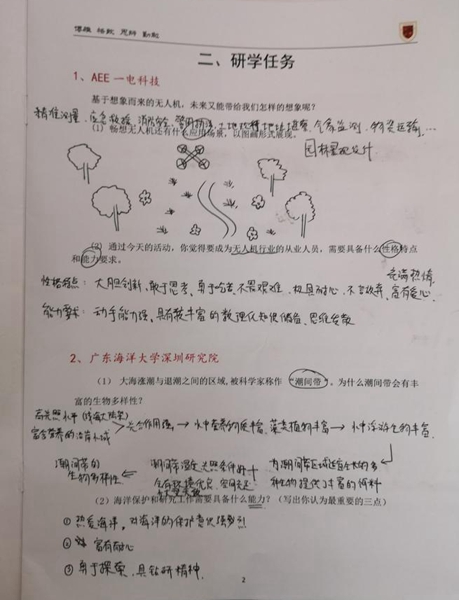 二、研学任务
1、AEE 一电科技
基于想象而来的无人机，未来又能带给我们怎样的想象呢？
精准测量、应急救援、消防安全、
（1）畅想无人机还有什么应用场景，以图画形式展现。
园林景观设计
（2）通过今天的活动，你觉得要成为无人机行业的从业人员，需要具备什么性格特点
和能力要求。
充满热情
性格特点：大胆创新、敢于思考、勇于 不畏艰难、极具耐心、不言放弃、富有爱心
能力要求：动手能力强、具有较丰富的数理化知识储备、思维发散
2、广东海洋大学深圳研究院
（1）大海涨潮与退潮之间的区域,被科学家称作“潮间带”。为什么潮间带会有丰
富的生物多样性？
光合作用强 → 水中营养物质丰富、藻类植物丰富 → 水中浮游生物丰富
富含营养的沿岸水域
潮间带的 潮间带 光照条件好 为潮间带区域
生物多样性 物种提供了丰富的饵料
（2）海洋保护和研究工作需要具备什么能力？（写出你认为最重要的三点）
① 热爱海洋，对海洋的保护意识强烈
② 富有耐心
③ 勇于探索、具钻研精神.
2